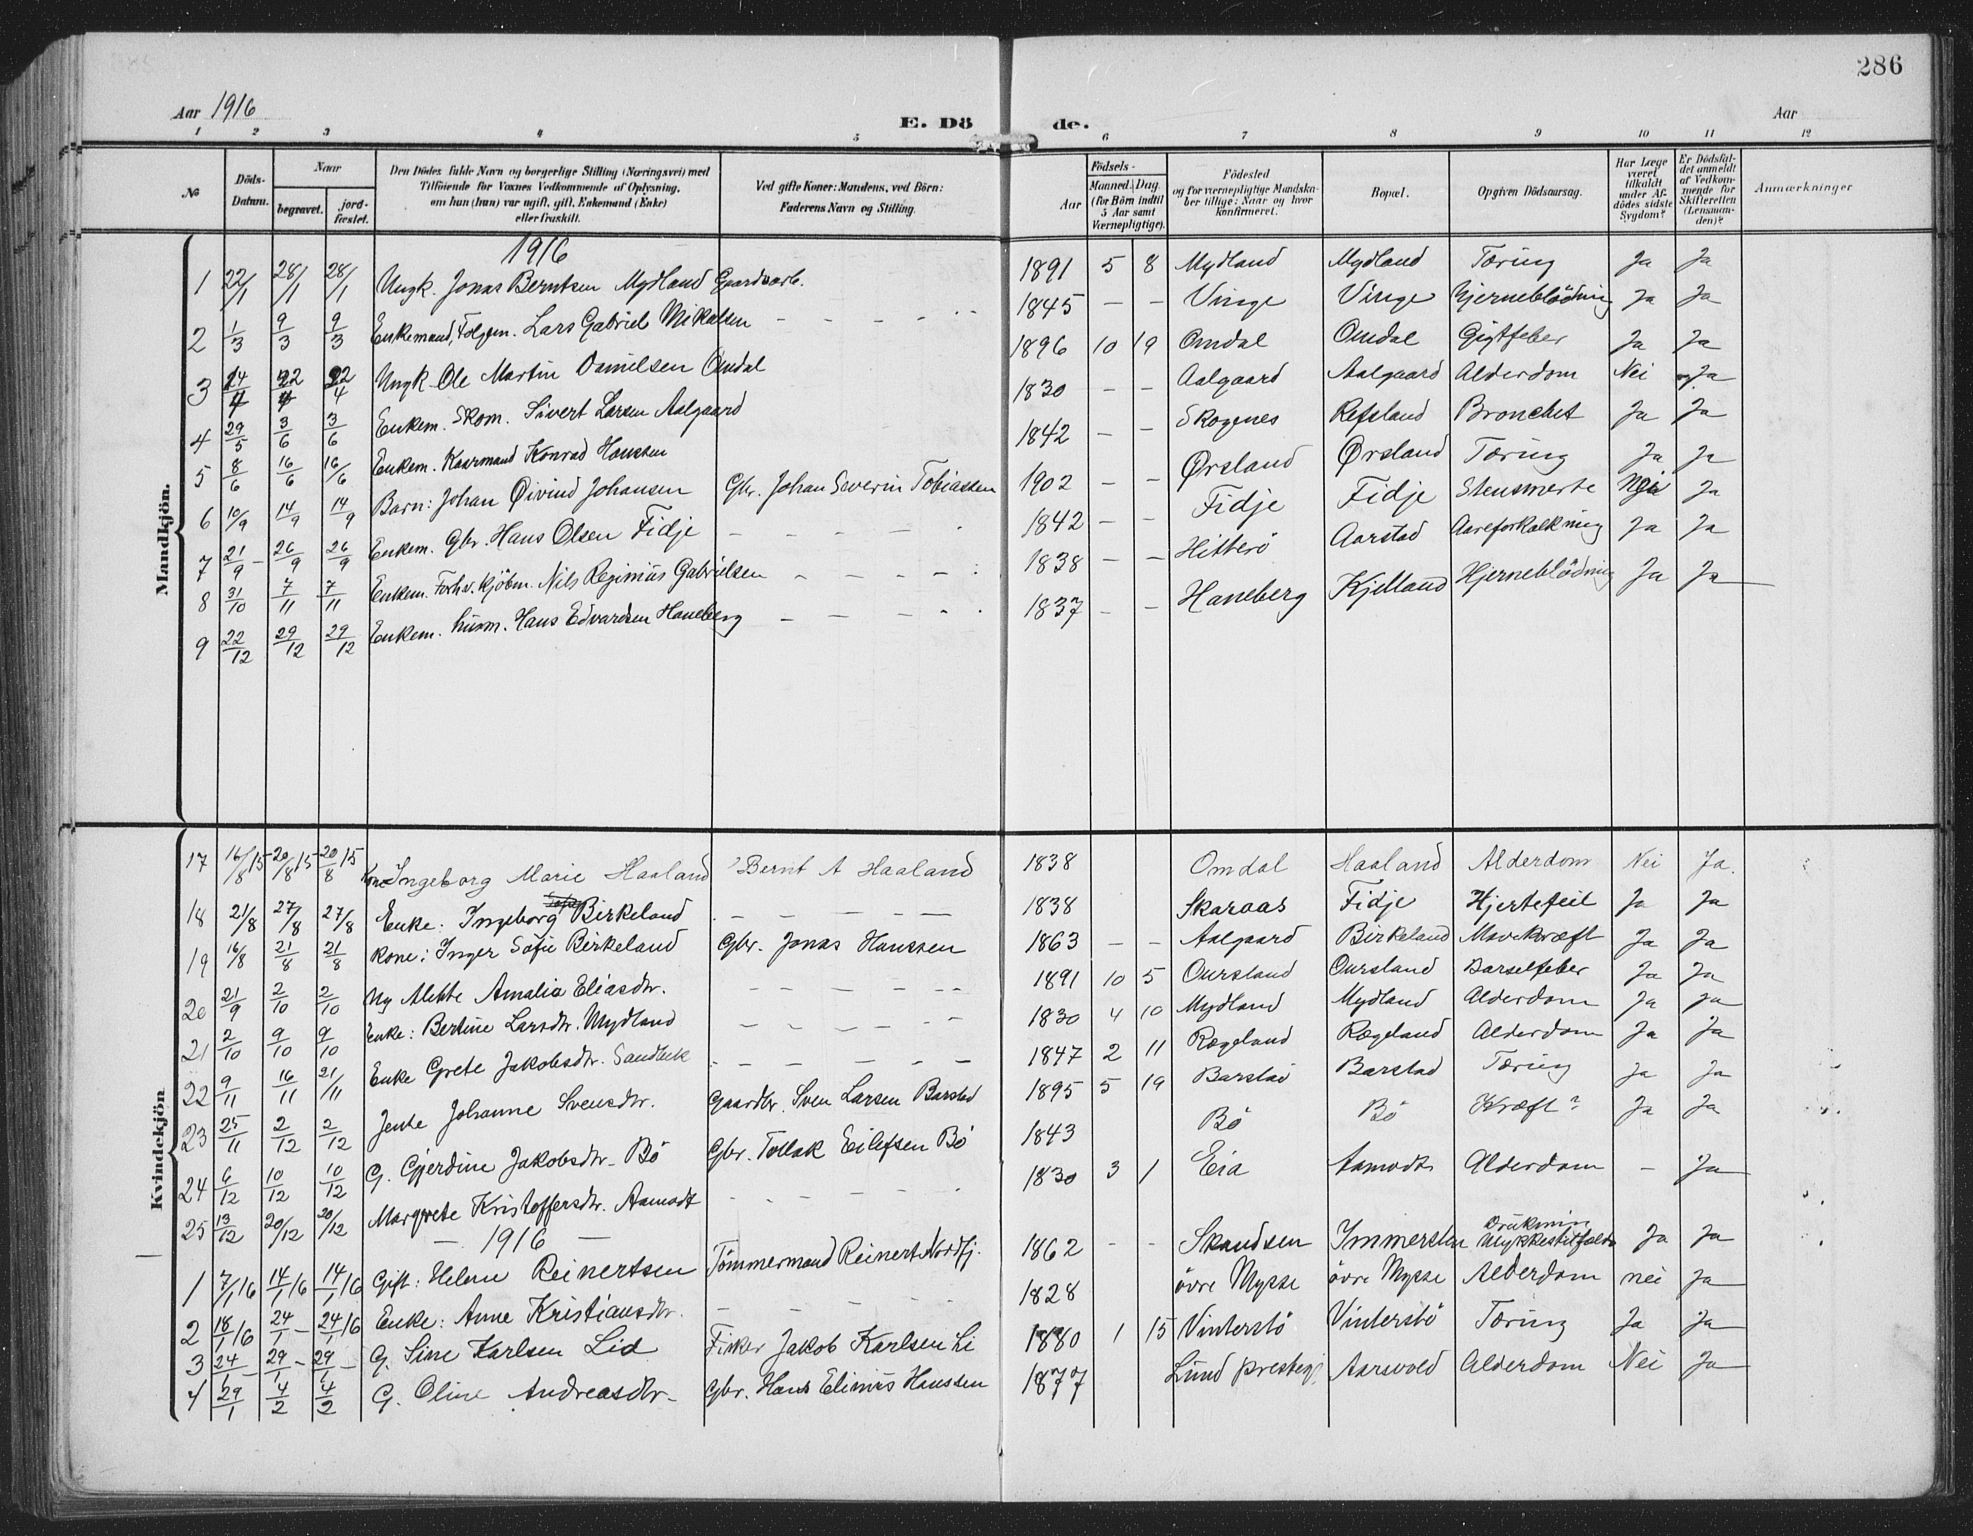 286
Aar 1916
E. Dö de.
Aar
1 2 3 4 5 6 7 8 9 10 11 12
No
Döds-Datum.
Naar
begravet.
jordfæstet.
Den Dödes fulde Navn og borgerlige Stilling (Næringsvei) med
Tilföiende for Voxnes Vedkommende af Oplysning,
om han (hun) var ugift, gift, Enkemand (Enke)
eller fraskilt.
Ved gifte Koner: Mandens, ved Börn:
Faderens Navn og Stilling.
Födsels-
Aar
Maaned. Dag.
(for Börn indtil
5 Aar samt
Værnepligtige).
Födested
og for værnepligtige Mandskaber tillige: Naar og hvor
konfirmeret.
Bopæl.
Opgiven Dödsaarsag.
Har Læge
været
tilkaldt
under Af-
dödes sidste
Sygdom?
Er Dödsfal-
det anmeldt
af Vedkom-
mende for
Skifteretten
(Lensman-
den)?
Anmærkninger
Mandkjön.
1916
1 22/1 28/1 28/1 Ungk. Jonas Berntsen Mydland Gaardsarb. 1891 5 8 Mydland Mydland Tæring Ja Ja
2 1/3 9/3 9/3 Enkemand, Folgem. Lars Gabriel Mikalsen - - - - - 1845 - - Vinge Vinge Hjerneblödning Ja Ja
3 14/4 22/4 22/4 Ungk. Ole Martin Danielsen Omdal 1896 10 19 Omdal Omdal Gigtfeber Ja Ja
4 29/5 3/6 3/6 Enkem. Skom. Sivert Larsen Aalgaard 1830 - - Aalgaard Aalgaard Alderdom Nei Ja
5 8/6 16/6 16/6 Enkem. Kaarmand Konrad Hanssen 1842 - - Skogenes Refsland Bronchit Ja Ja
6 10/9 14/9 14/9 Barn: Johan Öivind Johansen Gbr. Johan Severin Tobiassen 1902 - - Ørsland Ørsland Tæring Ja Ja
7 21/9 - 26/9 26/9 Enkem. Gbr. Hans Olsen Fidje - - - - 1842 - - Fidje Fidje Stensmerte Nei Ja
8 31/10 7/11 7/11 Enkem. Forhv. Kjöbm. Nils Regimius Gabrielsen - - - - 1838 - - Hitterö Aarstad Aareforkalkning Ja Ja
9 22/12 29/12 29/12 Enkem. husm. Hans Edvardsen Haneberg - - - - 1837 - - Haneberg Kjelland Hjerneblödning Ja Ja
Kvindekjön
17 16/8 15 20/8 15 20/8 15 Kone Ingeborg Marie Haaland Bernt A Haaland 1838 Omdal Haaland Alderdom Nei Ja.
18 21/8 27/8 27/8 Enke: Ingeborg Birkeland - - - - - 1838 Skaraas Fidje Hjertefeil Ja Ja
19 16/8 21/8 21/8 Kone: Inger Sofie Birkeland Gbr. Jonas Hanssen 1863 - - Aalgaard Birkeland Mavekræft Ja Ja
20 21/9 2/10 2/10 Ug Alette Amalia Eliasdtr. - - - - - 1891 10 5 Oursland Oursland Barselfeber Ja Ja
21 2/10 9/10 9/10 Enke: Bertine Larsdtr. Mydland - - - - - 1830 4 10 Mydland Mydland Alderdom Ja Ja
22 9/11 16/11 21/11 Enke Grete Jakobsdtr. Sandbek - - - - - 1847 2 11 Rægeland Rægeland Alderdom Ja Ja
23 25/11 2/12 2/12 Jente Johanne Svensdtr. Gaardbr. Sven Larsen Barstad 1895 5 19 Barstad Barstad Tæring Ja Ja
24 6/12 10/12 10/12 G. Gjerdine Jakobsdtr. Bö Gbr. Tollak Eilefsen Bö 1843 Bö Bö Kræft? Ja Ja
25 13/12 20/12 20/12 Margrete Kristoffersdtr. Aamodt - - - - - 1830 3 1 Eia Aamodt Alderdom - Ja
— 1916 —
1 7/1 16 14/1 16 14/1 16 Gift: Helene Reinertsen Tömmermand Reinert Nordfj. 1862 - - Skandsen Immerstein Ulykkestilfælde Ja Ja
2 18/1 16 24/1 - 24/1 16 Enke: Anne Kristiansdtr. - - - - 1828 övre Mysse övre Mysse Alderdom nei Ja
3 24/1 - 29/1 - 29/1 - G. Sine Karlsen Lid Fisker Jakob Karlsen Li 1880 1 15 Vinterstö Vinterstö Tæring Ja Ja
4 29/1 4/2 4/2 G. Oline Andreasdtr. Gbr. Hans Elinius Hanssen 1877 Lund prestegj. Aarsvold Alderdom Nei Ja